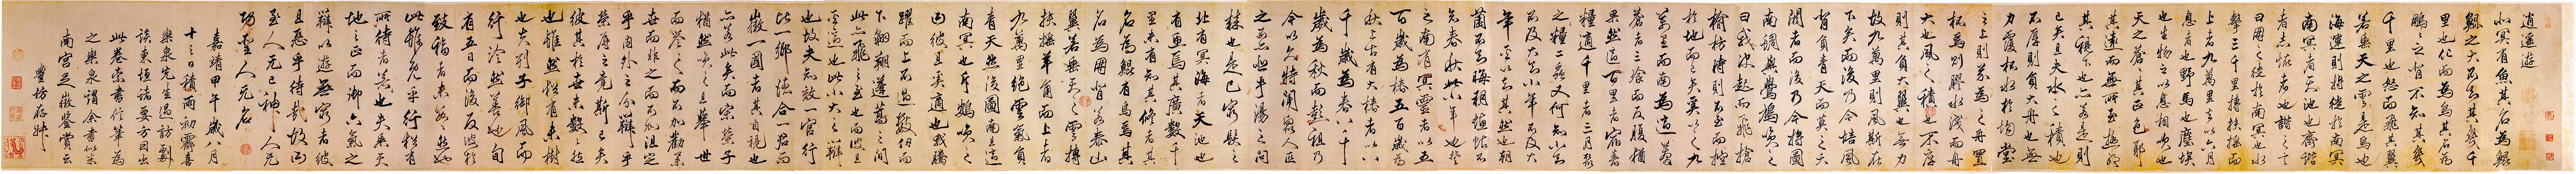 逍遙遊
北冥有魚其名為鯤
鯤之大不知其幾千
里也化而為鳥其名為
鵬鵬之背不知其幾
千里也怒而飛其翼
若垂天之雲是鳥也
海運則將徙於南冥
南冥者天池也齊諧
者志怪者也諧之言
曰鵬之徙於南冥也水
擊三千里摶扶搖而
上者九萬里去以六月
息者也野馬也塵埃
也生物之以息相吹也
天之蒼々其正色耶
其遠而無所至極耶
其視下也亦若是則
已矣且夫水之積也
不厚則負大舟也無
力覆杯水於坳堂
之上則芥為之舟置
杯焉則膠水淺而舟
大也風之積也不厚
則其負大翼也無力
故九萬里則風斯在
下矣而後乃今培風
背負青天而莫之夭
閼者而後乃今將圖
南蜩與鷽鳩笑之
曰我決起而飛搶
榆枋時則不至而控
於地而已矣奚以之九
萬里而南為適莽
蒼者三飡而反腹猶
果然適百里者宿舂
糧適千里者三月聚
糧之二蟲又何知小知
不及大知小年不及大
年奚以知其然也朝
菌不知晦朔蟪蛄不
知春秋此小年也楚
之南有冥靈者以五
百歲為春五百歲為
秋上古有大椿者以八
千歲為春八千
歲為秋而彭祖乃
今以久特聞眾人匹
之不亦悲乎湯之問
棘也是已窮髮之
北有冥海者天池也
有魚焉其廣數千
里未有知其修者其
名為鯤有鳥焉其
名為鵬背若泰山
翼若垂天之雲摶
扶搖羊角而上者
九萬里絕雲氣負
青天然後圖南且適
南冥也斥鴳笑之
曰彼且奚適也我騰
躍而上不過數仞而
下翱翔蓬蒿之間
此亦飛之至也而彼且
奚適也此小大之辯
也故夫知效一官行
比一鄉德合一君而
徵一國者其自視也
亦若此矣而宋榮子
猶然笑之且舉世
而譽之而不加勸舉
世而非之而不加沮定
乎內外之分辯乎
榮辱之竟斯已矣
彼其於世未數々然
也雖然猶有未樹
也夫列子御風而
行泠然善也旬
有五日而後反彼於
致福者未數々然也
此雖免乎行猶有
所待者若夫乘天
地之正而御六氣之
辯以遊無窮者彼
且惡乎待哉故曰
至人无己神人无
功聖人无名
嘉靖甲午歲八月
十三日積雨初霽喜
樂泉先生過訪劇
談東垣諸要方因出
此卷索書信筆為
之樂泉謂余書似米
南宮足徵鑒賞云
豐坊存叔